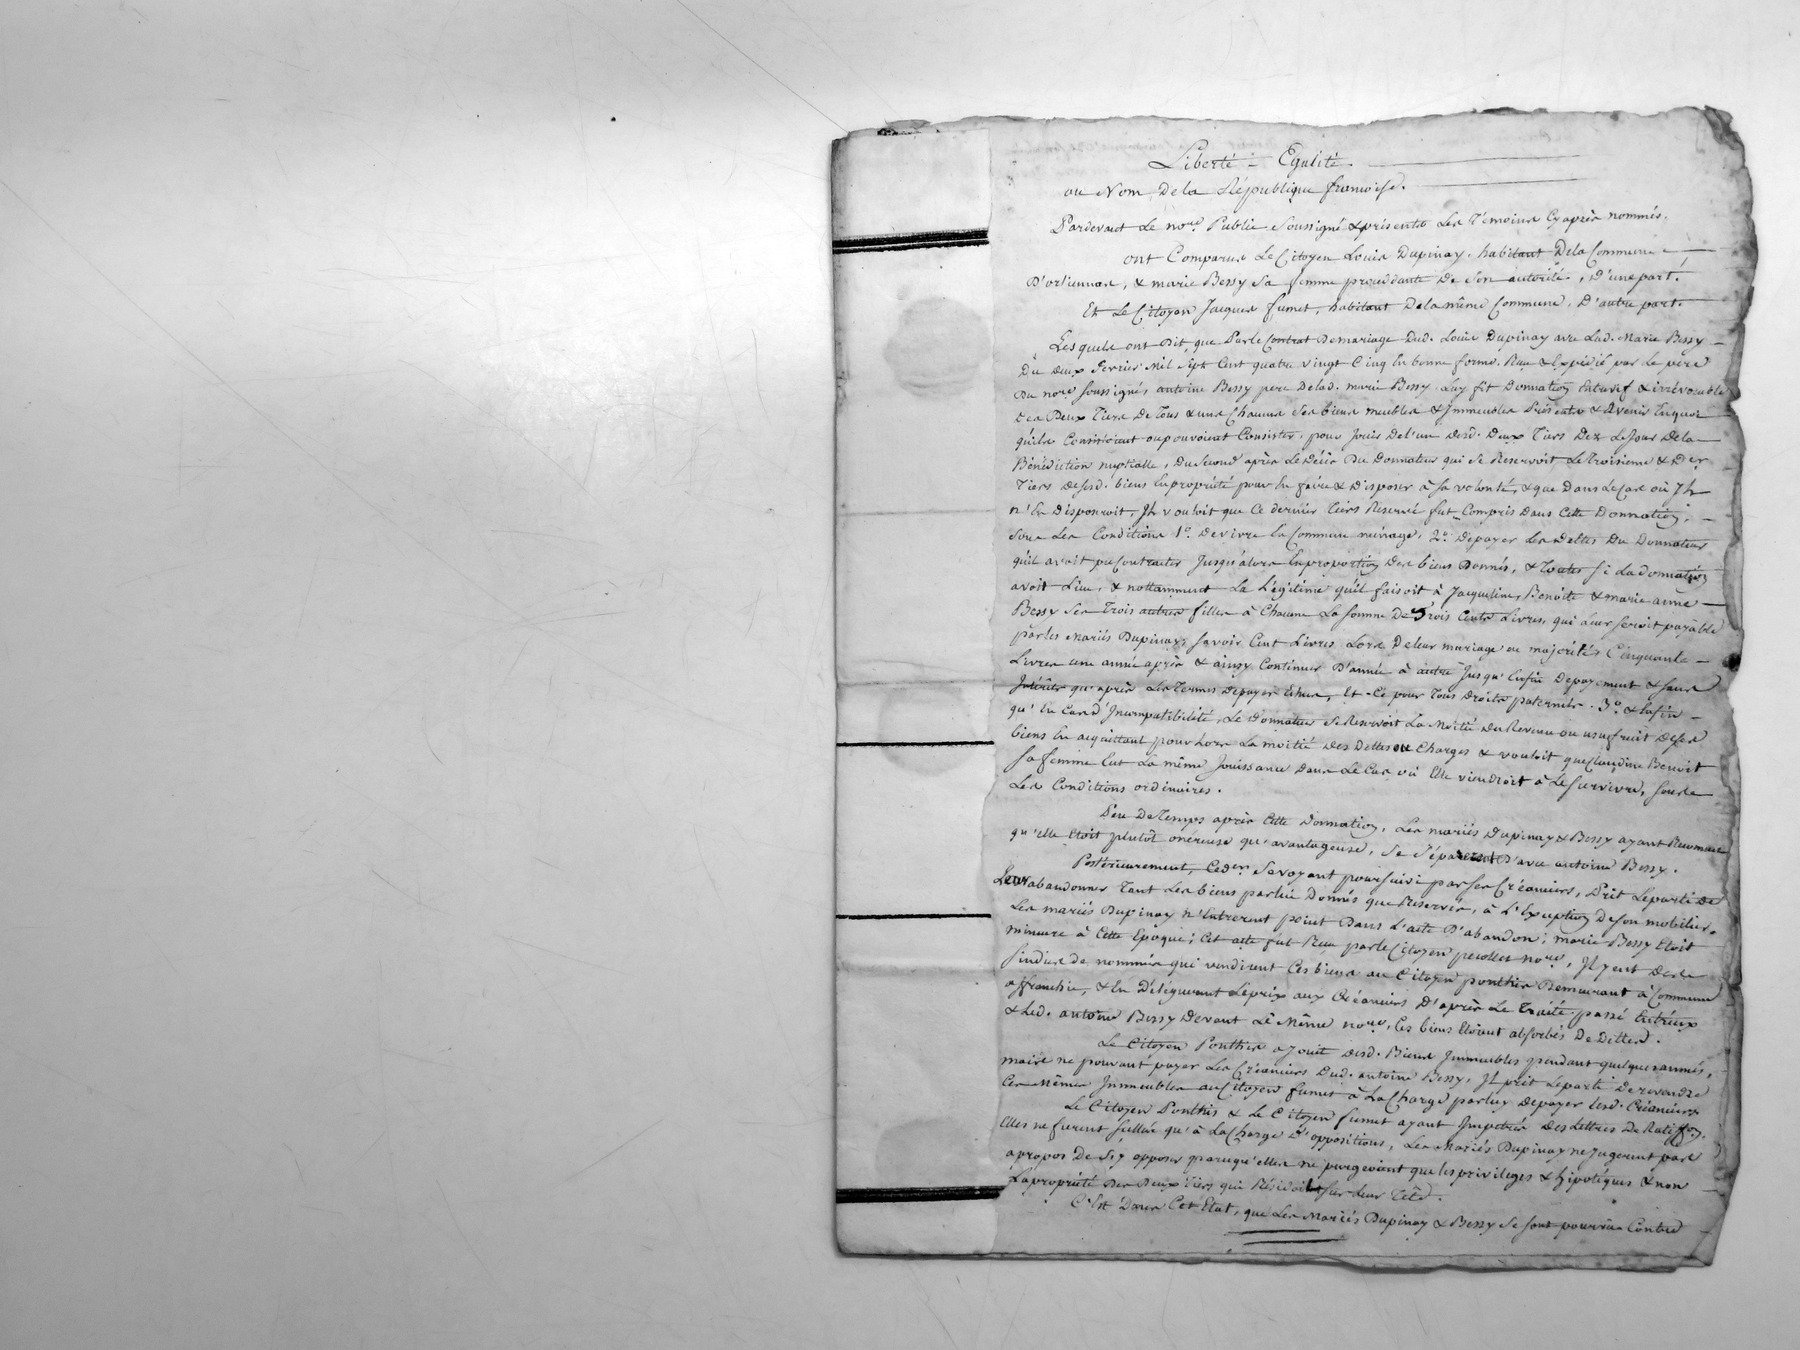 Liberté - Egalité.
au Nom de la République françoise.
Pardevant Le nore. Public Soussigné & présents Les Témoins Cyaprès nommés.
ont Comparus Le Citoyen Louis Dupinay, habitant De la Commune
D'orliennas, & marie Bessy Sa femme procédante De Son autorité, D'une part.
Et Le Citoyen Jacques fumet, habitant De la même Commune, D'autre part.
Lesquels ont Dit, que Par le Contrat De mariage Dud. Louis Dupinay avec Lad. Marie Bessy
Du deux Fevrier Mil Sept Cent quatre vingt Cinq En bonne forme, Reçu & Expédié par Le père
Du nore. Soussigné, antoine Bessy pere De lad. marie Bessy Luy fit Donnation Entrevif & irrévocable
des Deux Tiers De Tous & uns Chacuns Ses biens meubles & Immeubles Présents & Avenir Enquoi
qu'ils Consistoient ou pouvoient Consister, pour Jouir De l'un desd. Deux Tiers Dez Le Jour De la
Bénédiction nuptialle, Du Second après Le Décès Du Donnateur qui Se Reservoit Le Troisieme & Der
Tiers desd. biens En propriété pour En faire & Disposer à Sa volonté, & que Dans Le Cas où Il
n'En Disposeroit, Il vouloit que Ce dernier tiers Réservé fut Compris Dans Cette Donnation,
Sous Les Conditions 1°. De vivre En Commun ménage, 2°. De payer Les Dettes Du Donnateur
qu'il avoit pu Contracter Jusqu'alors En proportion Des biens Donnés, & Toutes Si La donnation
avoit Lieu, & nottamment La Légitime qu'il faisoit à Jacqueline, Benoite & marie anne
Bessy Ses Trois autres filles à Chacune La Somme De Trois Cents Livres, qui Leur Seroit payable
par les Mariés Dupinay, Savoir Cent Livres Lors De leur mariage ou majorités Cinquante
Livres une année après & ainsy Continuer D'année à autre Jusqu'Enfin De payement & Sans
Intérêts qu'après Les Termes De payer Echus, Et Ce pour Tous Droits paternels. 3°. & Enfin
qu'En Cas D'Incompatibilité, Le Donnateur Se Reservoit La Moitié Du Revenu ou usufruit De ses
biens En acquittant pour Lors La moitié Des Dettes ou Charges & vouloit que Claudine Benoit
Sa femme Eut La même Jouissance Dans Le Cas où Elle viendroit à Le Survivre, Sous
Les Conditions ordinaires.
Peu De Temps après Cette Donnation, Les mariés Dupinay & Bessy ayant Reconnu
qu'elle Etoit plutôt onéreuse qu'avantageuse, Se Séparerent D'avec antoine Bessy.
Postérieurement, Ceder. Se voyant poursuivi par Ses Créanciers, Prit Le parti De
Leur abandonner Tant Les biens par lui Donnés que Réservés, à L'Exception De son mobilier.
Les mariés Dupinay n'Entrerent point Dans L'acte D'abandon; marie Bessy Etoit
mineure à Cette Epoque; Cet acte fut Reçu par le Citoyen nore, Il y eut Des
Sindics de nommés qui vendirent Ces biens au Citoyen Ponthus Demeurant à Commune
affranchie, & En Déléguerent Le prix aux Créanciers D'après Le Traité passé Entr'eux
& Led. antoine Bessy Devant Le Même nore, Les biens Etoient absorbés De Dettes.
Le Citoyen Ponthus a Jouit desd. Biens Immeubles pendant quelques années,
mais ne pouvant payer Les Créanciers Dud. antoine Bessy, Il prit Le parti De revendre
Ces Mêmes Immeubles au Citoyen fumet à La Charge par luy De payer Lesd. Créanciers.
Le Citoyen Ponthus & Le Citoyen fumet ayant Impetrés Des Lettres De Ratifon.
Elles ne furent Scellées qu'à La Charge D'oppositions, Les Mariés Dupinay ne Jugerent pas
apropos De S'y opposer parcequ'elles ne purgeoient que les privileges & hipotéques & non
La propriété Des Deux Tiers qui Résidoit sur Leur Tête.
C'Est Dans Cet Etat, que Les Mariés Dupinay & Bessy Se Sont pourvus Contre